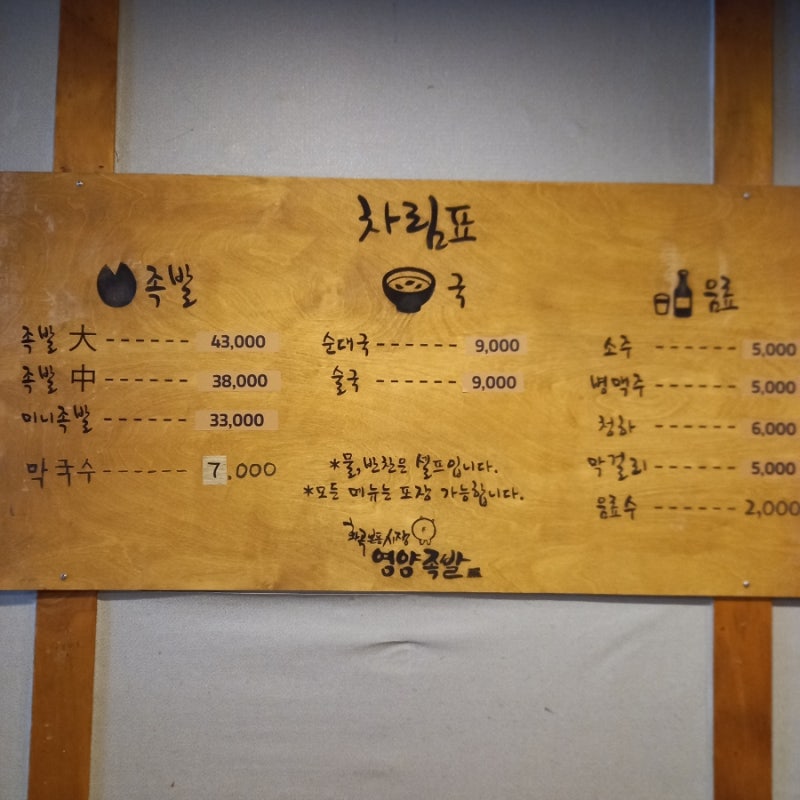 차림표
족발
족발 大 ------ 43,000
족발 中 ------ 38,000
미니족발 ------ 33,000
막국수 ------ 7,000
국
순대국 ------ 9,000
술국 ------ 9,000
*물,반찬은 셀프입니다.
*모든 메뉴는 포장 가능합니다.
화곡본동시장
영양족발
음료
소주 ------ 5,000
병맥주 ------ 5,000
청하 ------ 6,000
막걸리 ------ 5,000
음료수 ------ 2,000